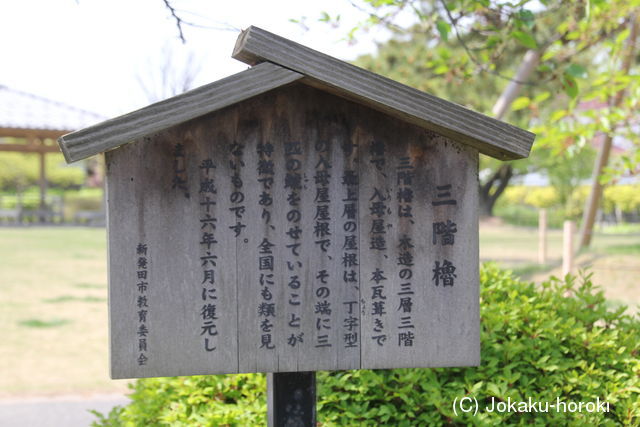 三階櫓
三階櫓は、木造の三層三階
櫓で、入母屋造、本瓦葺きで
す。最上層の屋根は、丁字型
の入母屋屋根で、その端に三
匹の鯱をのせていることが
特徴であり、全国にも類を見
ないものです。
平成十六年六月に復元し
ました。
新発田市教育委員会
(C) Jokaku-horoki